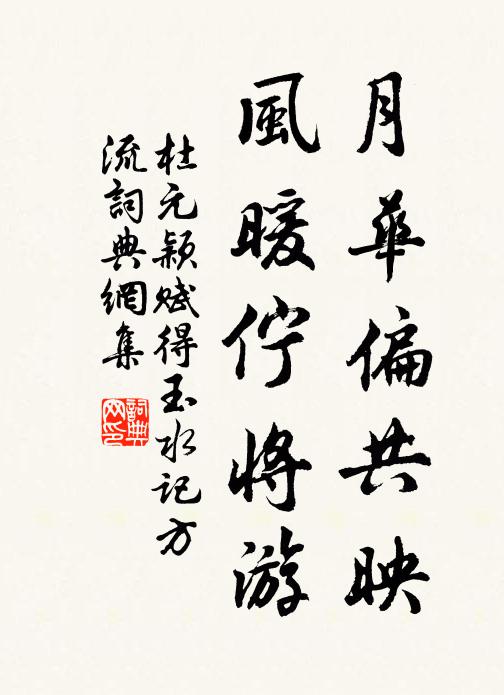 月華偏共映
風暖佇將游
杜元颖赋得玉水记方
流詞典網集
詞典
网印